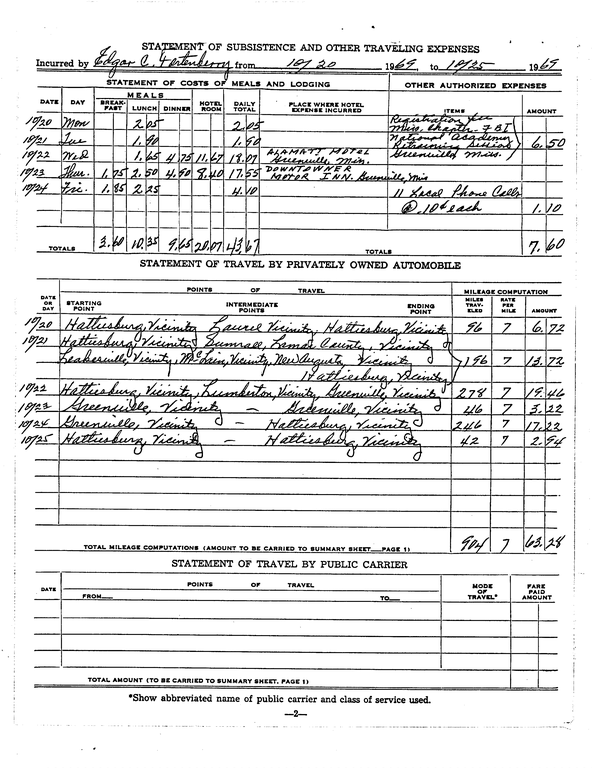 STATEMENT OF SUBSISTENCE AND OTHER TRAVELING EXPENSES
Incurred by Edgar C. Fortenberry from 10/20 1969 to 10/25 1969
STATEMENT OF COSTS OF MEALS AND LODGING OTHER AUTHORIZED EXPENSES
DATE DAY MEALS BREAK-FAST LUNCH DINNER HOTEL ROOM DAILY TOTAL PLACE WHERE HOTEL EXPENSE INCURRED ITEMS AMOUNT
10/20 Mon 2.05 2.05 Registration fee
Miss. Chapter FBI
10/21 Tue 1.90 1.90 National Academy 6.50
Retraining Session
10/22 Wed 1.65 4.75 11.67 18.07 ALAMATT MOTEL Greenville, Miss. Greenville, Miss.
10/23 Thur. 1.75 2.50 4.90 8.40 17.55 DOWNTOWNER MOTOR INN. Greenville, Mis
10/24 Fri. 1.85 2.25 4.10 11 Local Phone Calls
@ .10¢ each 1.10
TOTALS 3.60 10.35 9.65 20.07 43.67 TOTALS 7.60
STATEMENT OF TRAVEL BY PRIVATELY OWNED AUTOMOBILE
DATE OR DAY POINTS OF TRAVEL MILEAGE COMPUTATION
STARTING POINT INTERMEDIATE POINTS ENDING POINT MILES TRAV-ELED RATE PER MILE AMOUNT
10/20 Hattiesburg, Vicinity Laurel Vicinity, Hattiesburg, Vicinity 96 7 6.72
10/21 Hattiesburg, Vicinity, Sumrall, Lamar County, Vicinity
Leakesville, Vicinity, McLain, Vicinity, New Augusta Vicinity 196 7 13.72
Hattiesburg, Vicinity
10/22 Hattiesburg, Vicinity, Lumberton, Vicinity, Greenville, Vicinity 278 7 19.46
10/23 Greenville, Vicinity — Greenville, Vicinity 46 7 3.22
10/24 Greenville, Vicinity — Hattiesburg, Vicinity 246 7 17.22
10/25 Hattiesburg, Vicinity — Hattiesburg, Vicinity 42 7 2.94
TOTAL MILEAGE COMPUTATIONS (AMOUNT TO BE CARRIED TO SUMMARY SHEET PAGE 1) 904 7 63.28
STATEMENT OF TRAVEL BY PUBLIC CARRIER
DATE POINTS OF TRAVEL MODE OF TRAVEL* FARE PAID AMOUNT
FROM TO
TOTAL AMOUNT (TO BE CARRIED TO SUMMARY SHEET, PAGE 1)
*Show abbreviated name of public carrier and class of service used.
—2—